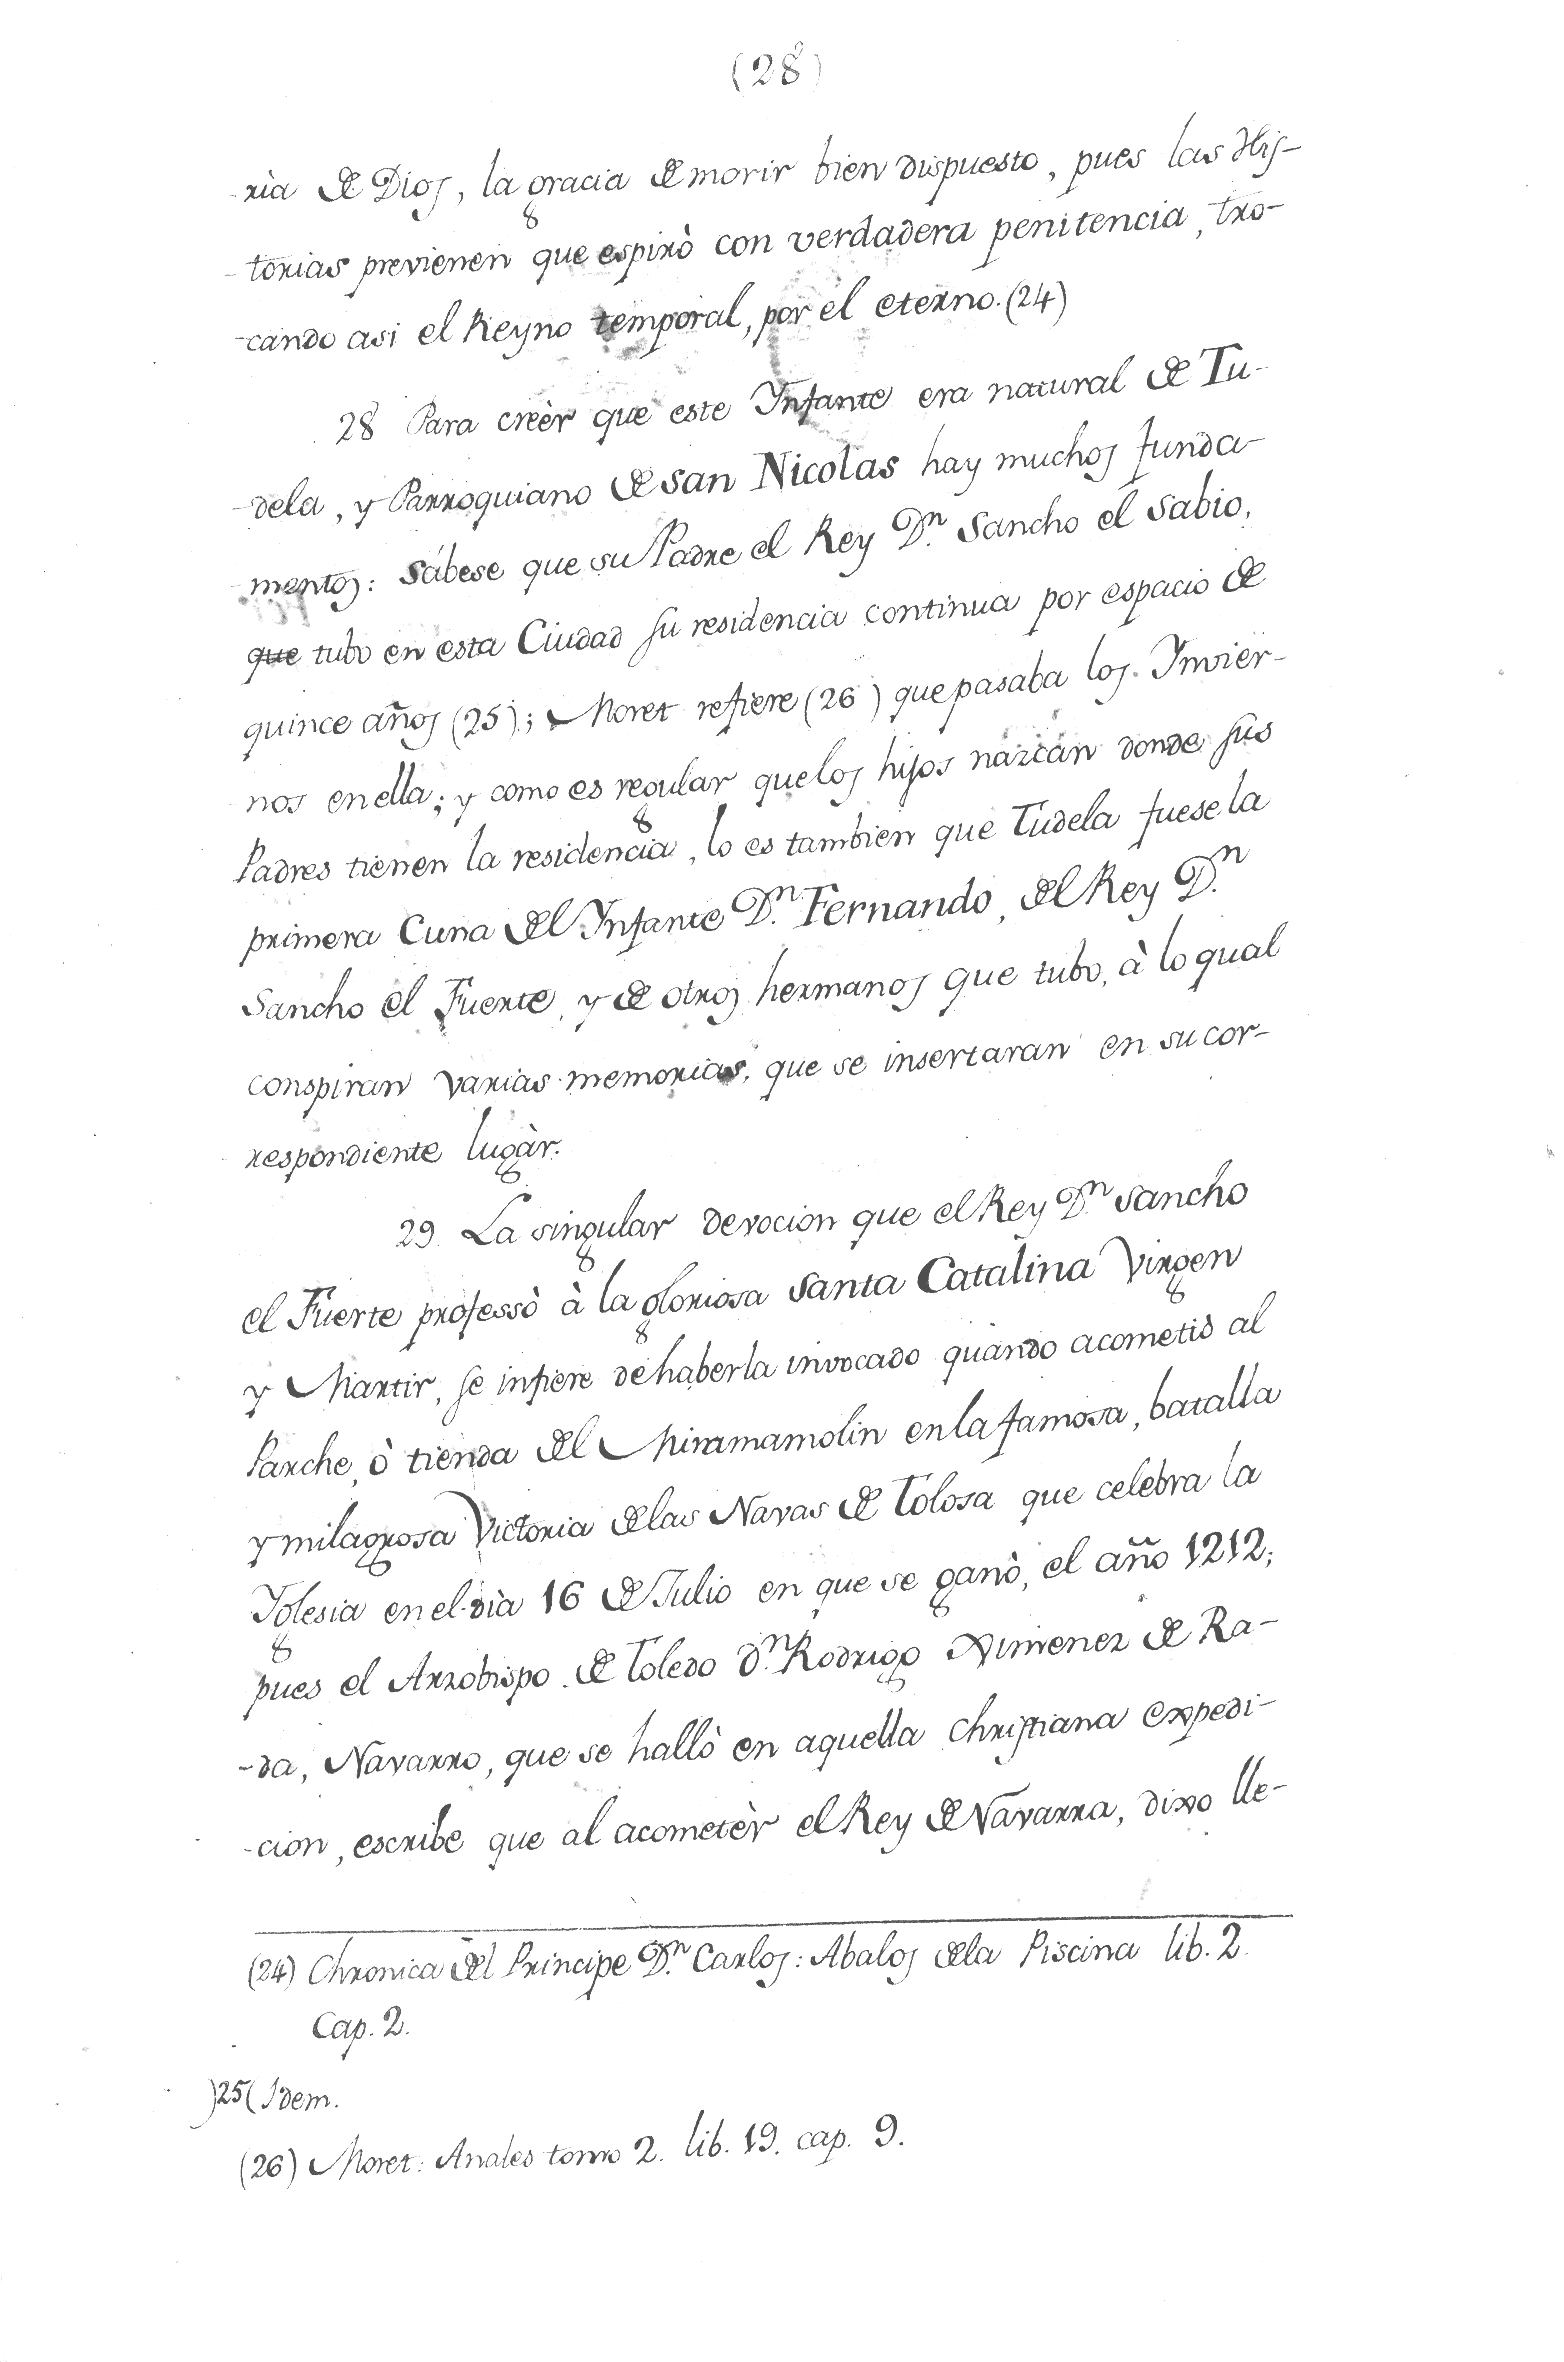 (28)
-ria de Dios, la gracia de morir bien dispuesto, pues las His-
-torias previenen que espirò con verdadera penitencia, tro-
-cando asi el Reyno temporal, por el eterno. (24)
28 Para creèr que este Ynfante era natural de Tu-
-dela, y Parroquiano de San Nicolas hay muchos funda-
-mentos: Sábese que su Padre el Rey Dn. Sancho el Sabio,
que tubo en esta Ciudad su residencia continua por espacio de
quince años (25); Moret refiere (26) que pasaba los Ynvier-
nos en ella; y como es regular que los hijos nazcan donde sus
Padres tienen la residencia, lo es tambien que Tudela fuese la
primera Cuna del Ynfante Dn. Fernando, del Rey Dn.
Sancho el Fuerte, y de otros hermanos que tubo, à lo qual
conspiran varias memorias, que se insertaran en su cor-
respondiente lugàr.
29. La singular devocion que el Rey Dn. Sancho
el Fuerte professò à la gloriosa Santa Catalina Virgen
y Martir, se infiere de haberla invocado quando acometiò al
Parche, ò tienda del Miramamolin en la famosa, batalla
y milagrosa Victoria de las Navas de Tolosa que celebra la
Yglesia en el dia 16 de Julio en que se ganò, el año 1212;
pues el Arzobispo de Toledo Dn. Rodrigo Ximenez de Ra-
-da, Navarro, que se hallò en aquella christiana expedi-
-cion, escribe que al acometèr el Rey de Navarra, dixo lle-
(24) Chronica del Principe Dn. Carlos: Abalos de la Piscina lib. 2.
Cap. 2.
)25( Idem.
(26) Moret: Anales tomo 2. lib. 19. cap. 9.